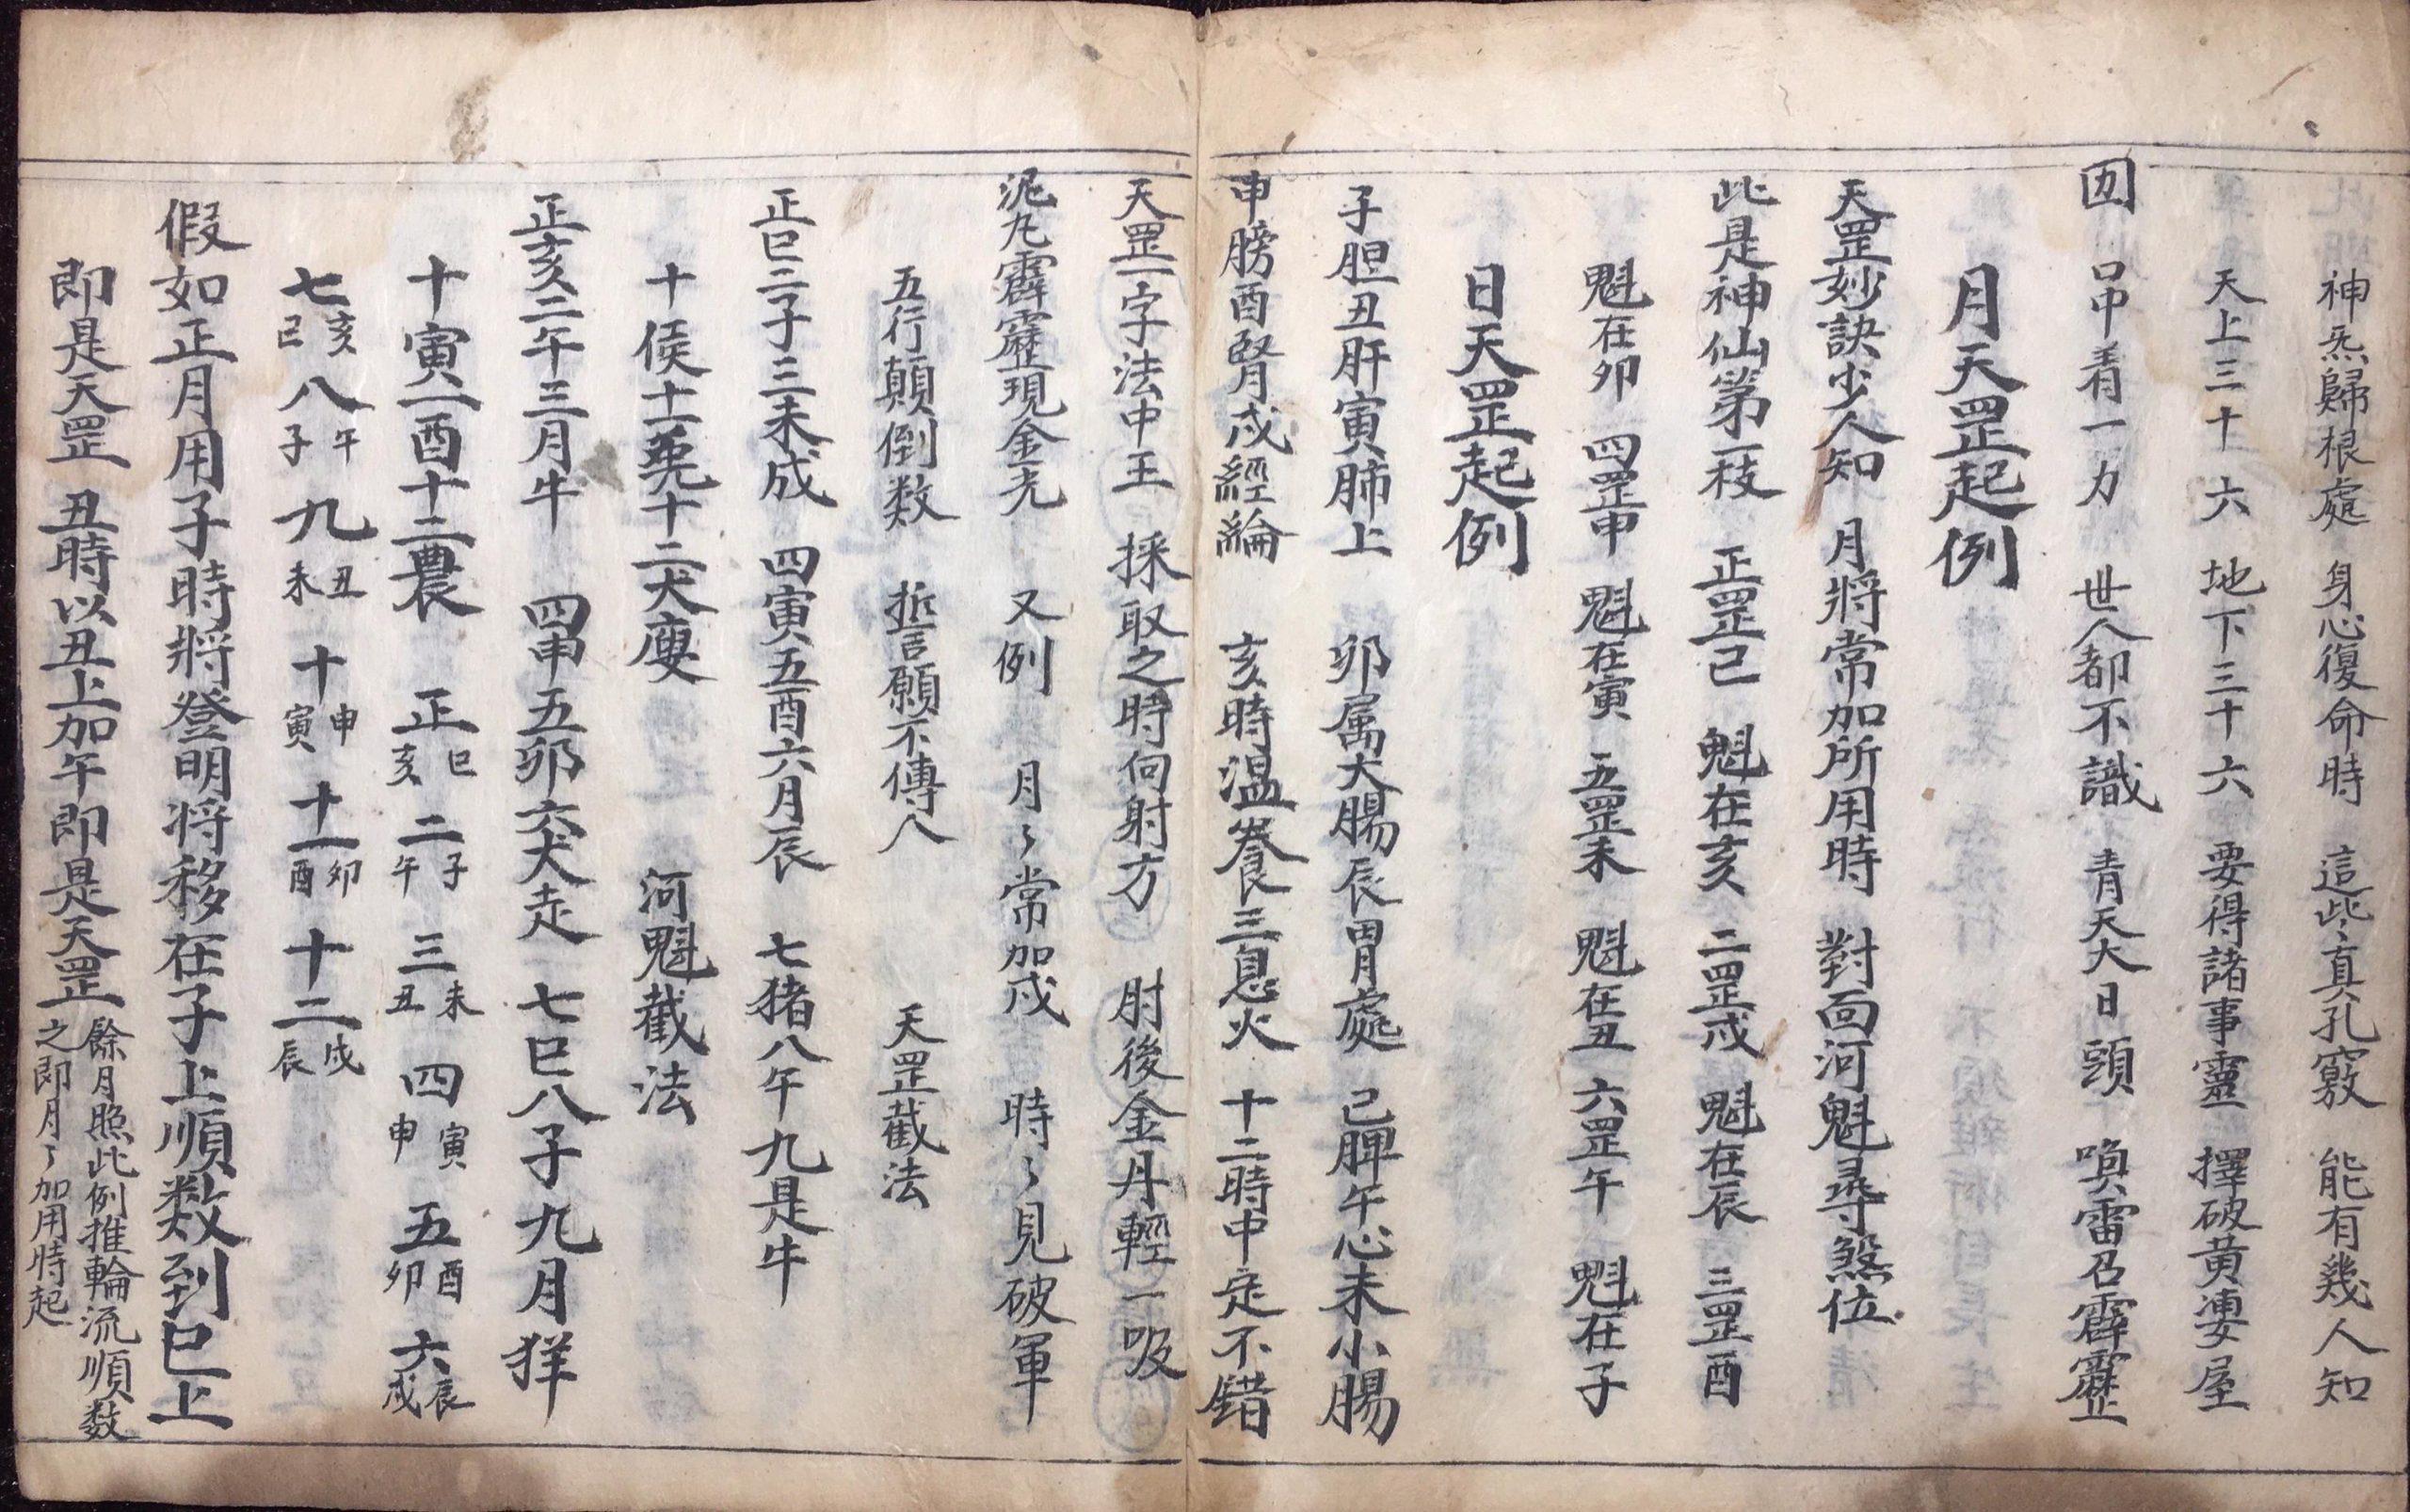 神炁歸根處　身心復命時　這些真孔竅　能有幾人知
天上三十六　地下三十六　要得諸事靈　擇破黃婁屋
囙　口中着一力　世人都不識　青天大日頭　喚雷召霹靂
月天罡起例
天罡妙訣少人知　月將常加所用時　對面河魁尋煞位
此是神仙第一枝　正罡已　魁在亥　二罡戍　魁在辰　三罡酉
魁在卯　四罡申　魁在寅　五罡未　魁在丑　六罡午　魁在子
日天罡起例
子胆丑肝寅肺上　卯属大腸辰胃處　已脾午心未小腸
申膀酉腎戍經綸　亥時温養三息火　十二時中定不錯
天罡一字法中王　採取之時向射方　肘後金丹輕一吸
泥丸霹靂現金光　又例　月〻常加戍　時〻見破軍
五行顛倒数　誓願不傳人　天罡截法
正巳二子三未成　四寅五酉六月辰　七猪八午九是牛
十侯十一兎十二犬慶　河魁截法
正亥二午三月牛　四申五卯六犬走　七巳八子九月羊
十寅十一酉十二農　正巳亥　二子午　三未丑　四寅申　五酉卯　六辰戍
七亥已　八午子　九丑未　十申寅　十一卯酉　十二戍辰
假如正月用子時將登明将移在子上順数到巳上
即是天罡　丑時以丑上加午即是天罡　餘月照此例推輪流順数之即月〻加用時起